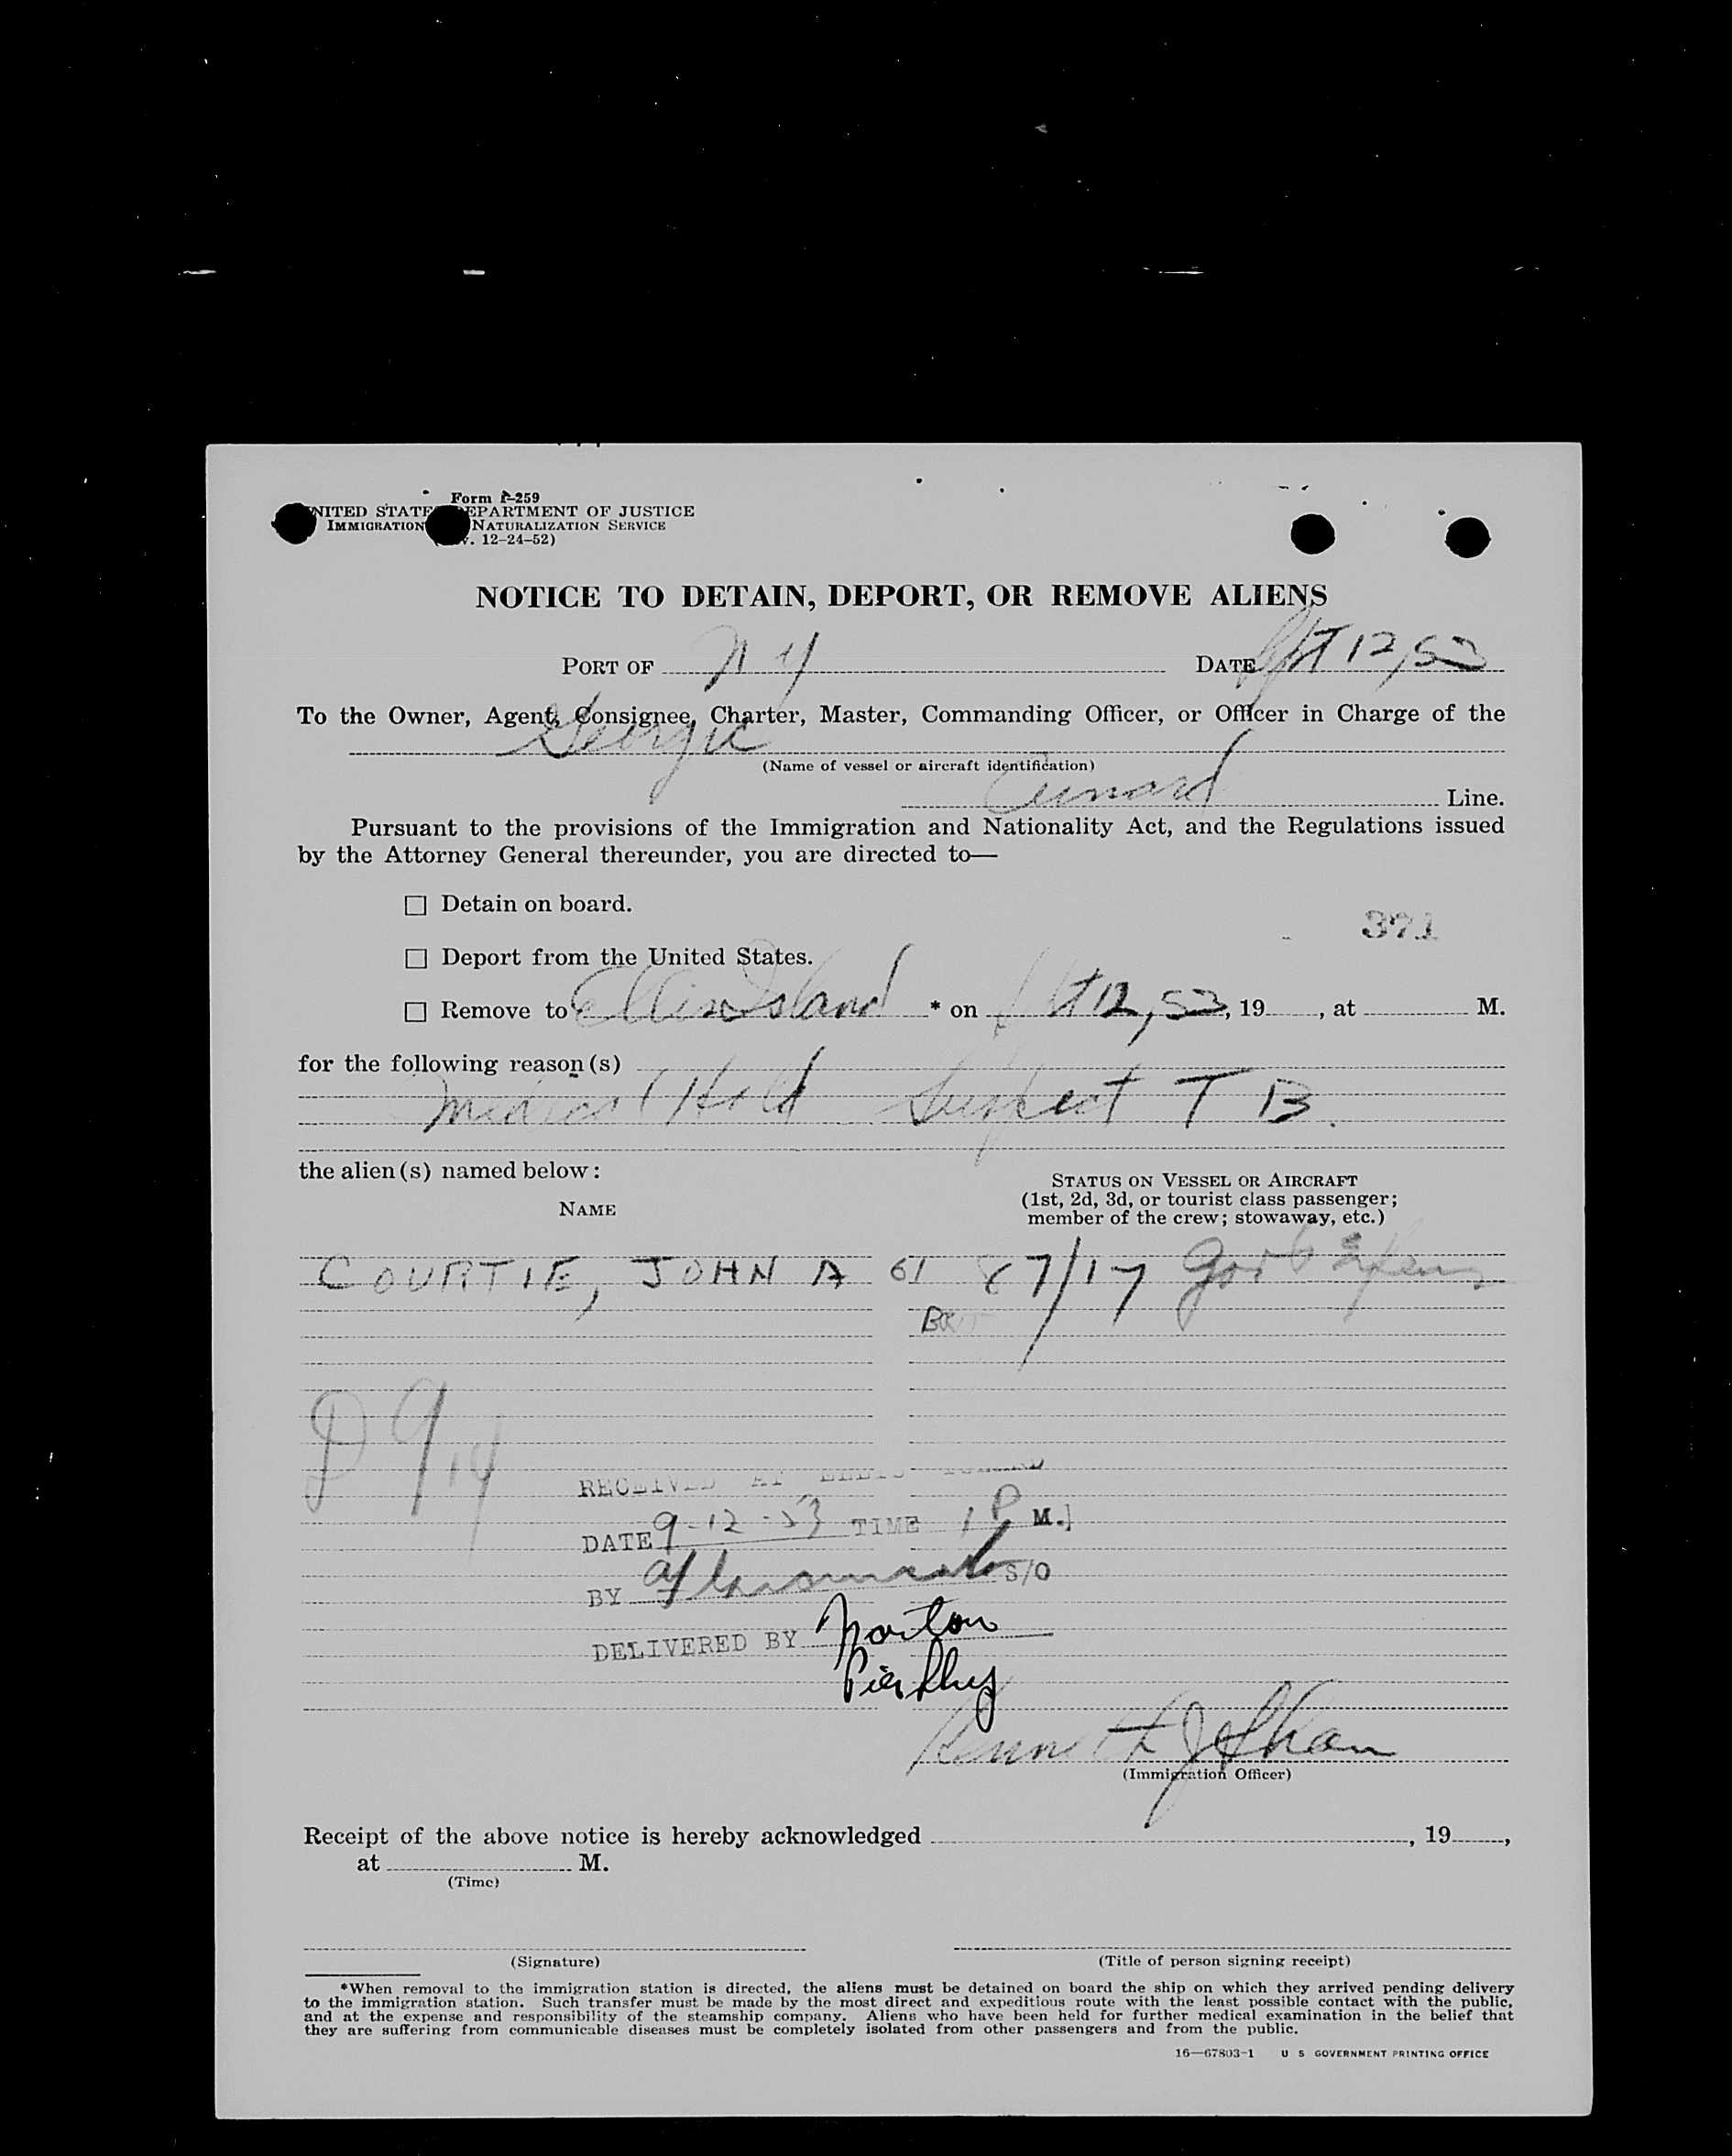 Form I-259
UNITED STATES DEPARTMENT OF JUSTICE
IMMIGRATION NATURALIZATION SERVICE
12-24-52)
NOTICE TO DETAIN, DEPORT, OR REMOVE ALIENS
PORT OF N Y DATE Sept 12, 53
To the Owner, Agent, Consignee, Charter, Master, Commanding Officer, or Officer in Charge of the
Georgic
(Name of vessel or aircraft identification)
Cunard Line.
Pursuant to the provisions of the Immigration and Nationality Act, and the Regulations issued
by the Attorney General thereunder, you are directed to—
☐ Detain on board.
371
☐ Deport from the United States.
☐ Remove to Ellis Island * on Sept 12, 53, 19 , at M.
for the following reason(s)
Medical Hold Suspect T B.
the alien(s) named below:
NAME
STATUS ON VESSEL OR AIRCRAFT
(1st, 2d, 3d, or tourist class passenger;
member of the crew; stowaway, etc.)
COURTIE, JOHN A 61 87/17 Govt Expens
D 9/14
RECEIVED AT ELLIS ISLAND
DATE 9-12-53 TIME 1 P M.
BY S/O
DELIVERED BY Norton
Kenneth J
(Immigration Officer)
Receipt of the above notice is hereby acknowledged , 19 ,
at M.
(Time)
(Signature) (Title of person signing receipt)
*When removal to the immigration station is directed, the aliens must be detained on board the ship on which they arrived pending delivery
to the immigration station. Such transfer must be made by the most direct and expeditious route with the least possible contact with the public,
and at the expense and responsibility of the steamship company. Aliens who have been held for further medical examination in the belief that
they are suffering from communicable diseases must be completely isolated from other passengers and from the public.
16—67803-1 U S GOVERNMENT PRINTING OFFICE